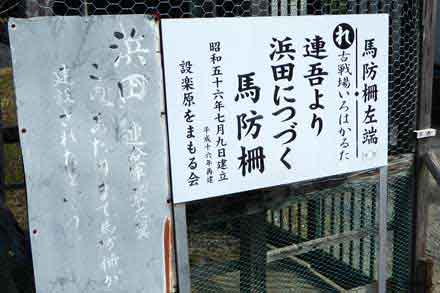 馬防柵左端
れ 古戦場いろはかるた
連吾より
浜田につづく
馬防柵
昭和五十六年七月九日建立
平成十六年再建
設楽原をまもる会
浜田
まで馬防柵が
建設された